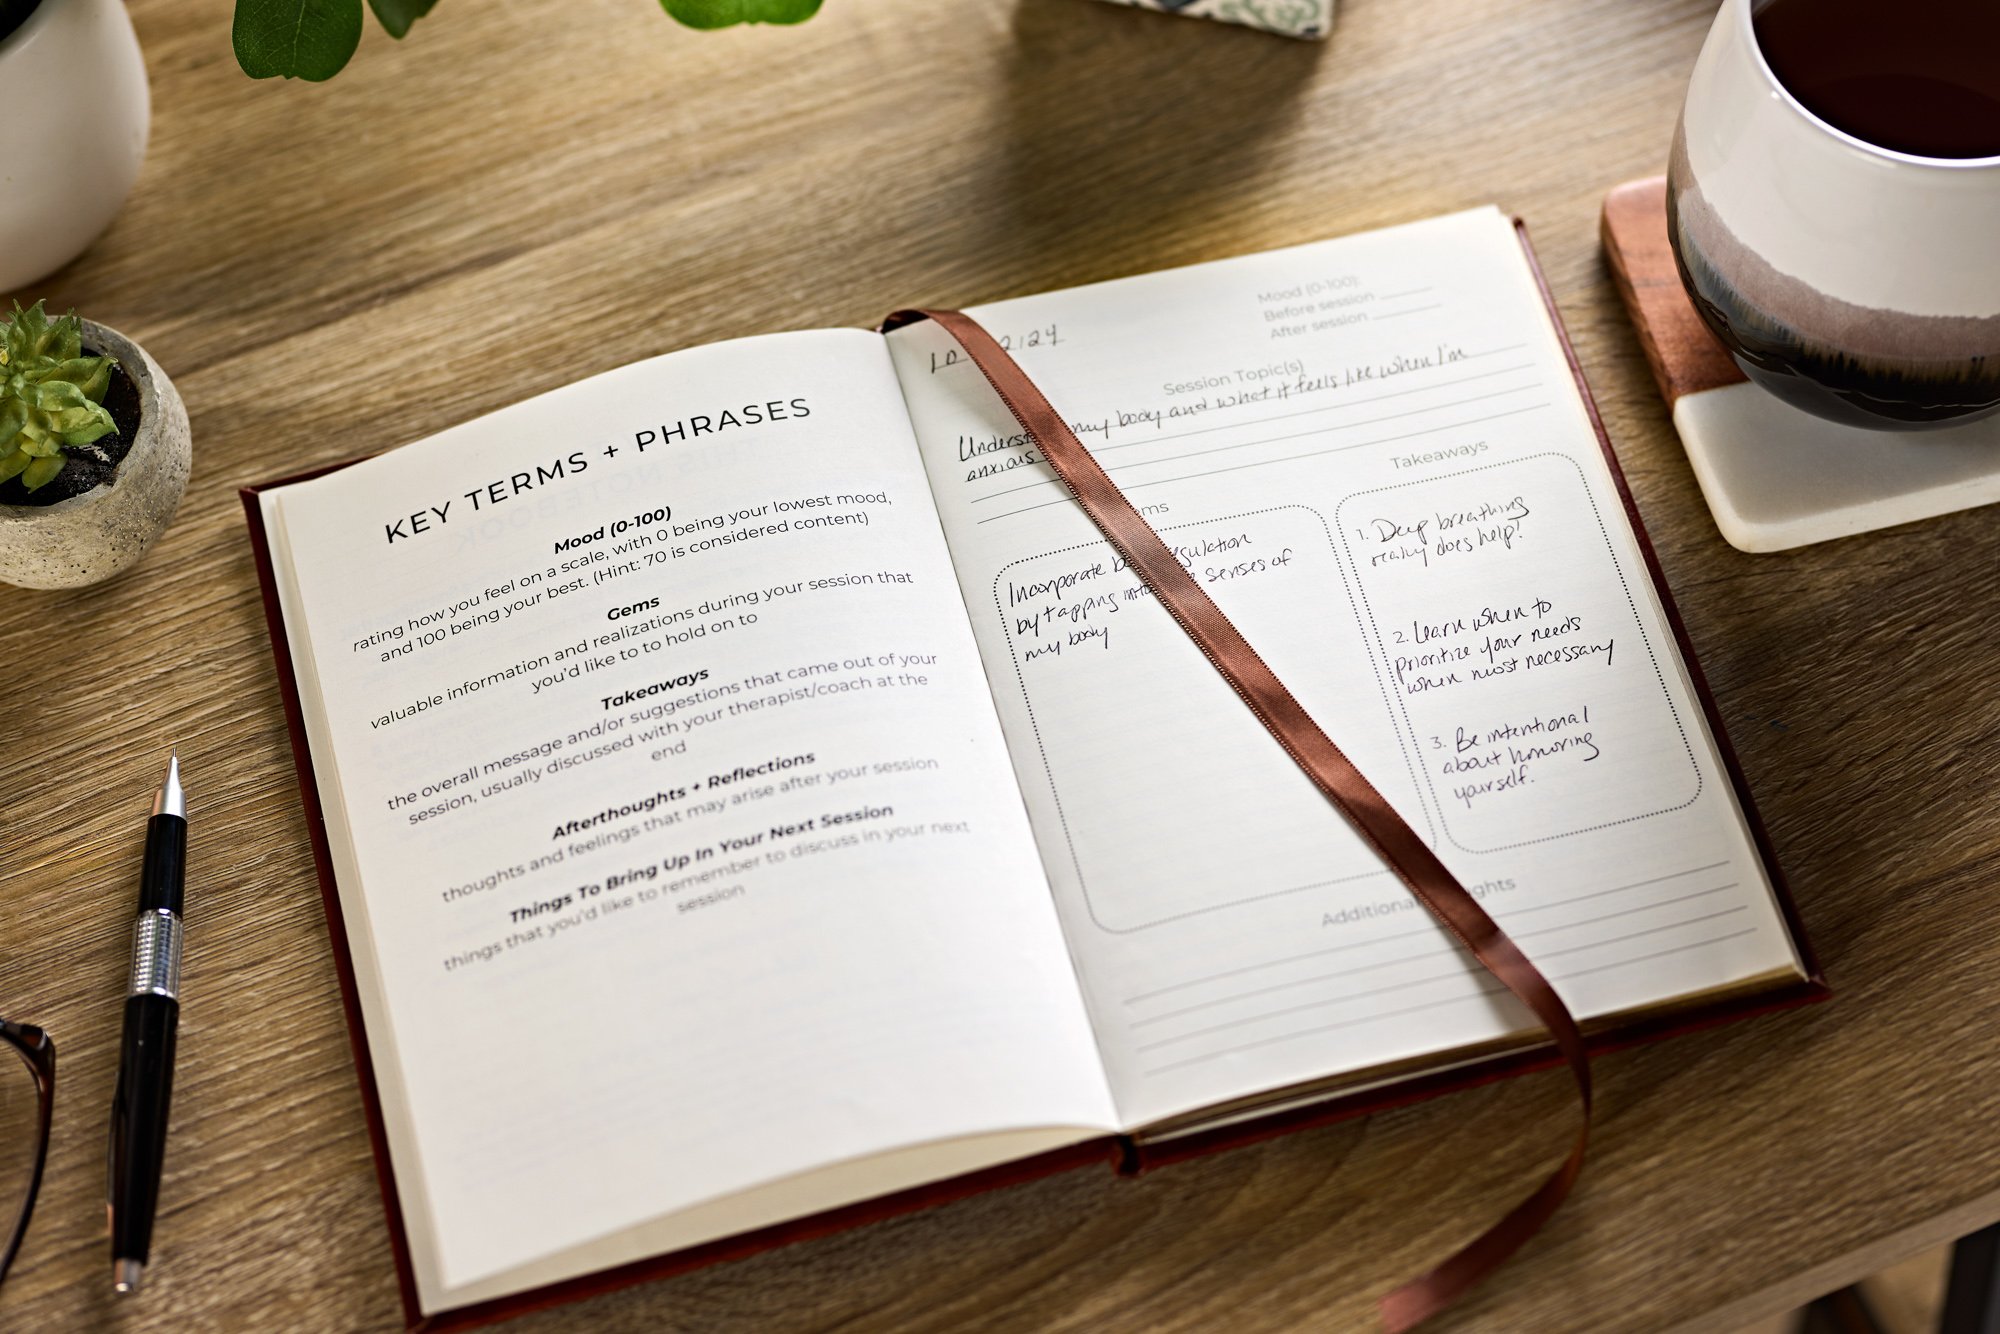 KEY TERMS + PHRASES
Mood (0-100)
rating how you feel on a scale, with 0 being your lowest mood,
and 100 being your best. (Hint: 70 is considered content)
Gems
valuable information and realizations during your session that
you'd like to to hold on to
Takeaways
the overall message and/or suggestions that came out of your
session, usually discussed with your therapist/coach at the
end
Afterthoughts + Reflections
thoughts and feelings that may arise after your session
Things To Bring Up In Your Next Session
things that you'd like to remember to discuss in your next
session
10 2124
Mood (0-100):
Before session
After session
Session Topic(s)
my body and what it feels like when I'm
anxious
Takeaways
Incorporate
by tapping senses of
my body
1. Deep breathing
really does help!
2. Learn when to
prioritize your needs
when most necessary
3. Be intentional
about honoring
yourself.
Additional